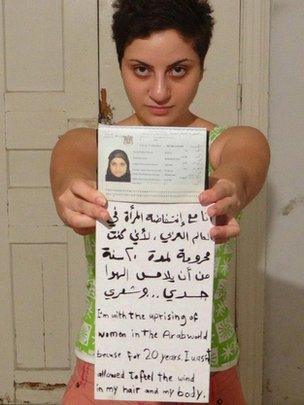 أنا مع إنتفاضة المرأة في
العالم العربي، لأنّي كنت
محرومة لمدة ٢٠ سنة
من أن يلامس الهوا
جسدي... وشعري
I'm with the uprising of
women in the Arab world
because for 20 years I wasn't
allowed to feel the wind
in my hair and my body.